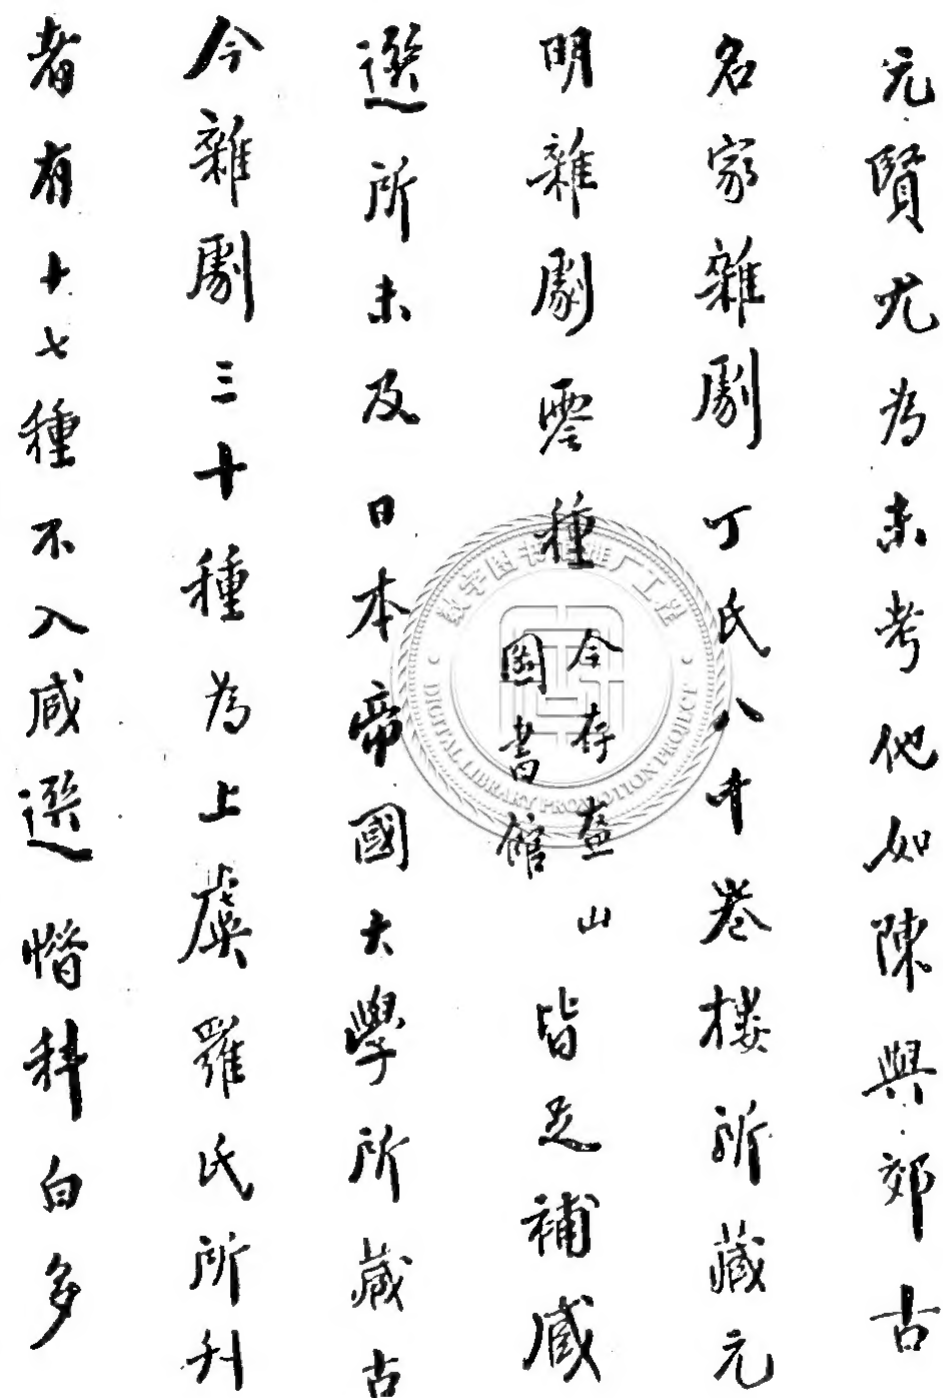 元賢尤為未考他如陳與郊古
名家雜劇丁氏八千卷樓所藏元
明雜劇零種今存盋山圖書館皆足補臧
選所未及日本帝國大學所藏古
今雜劇三十種為上虞羅氏所刋
者有十七種不入臧選惜科白多
数字图书馆推广工程
DIGITAL LIBRARY PROMOTION PROJECT